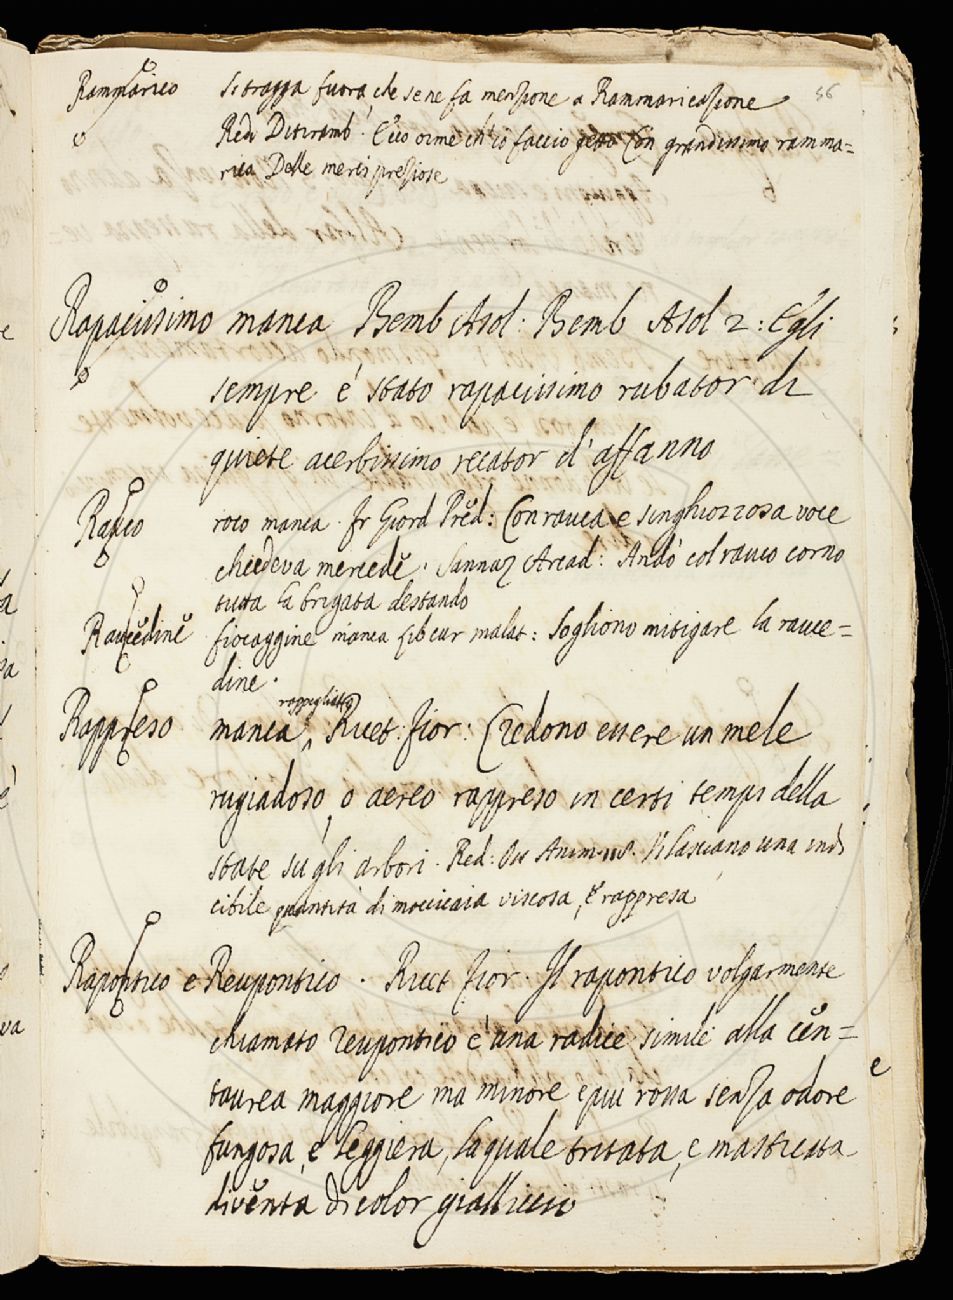 56
Rammarico si tragga fuora, che se ne fa menzione a Rammaricazione
Red: Ditiramb: Ecco oimè ch'io faccio getto Con grandissimo ramma=
rico Delle merci preziose
Rapacissimo manca Bemb Asol. Bemb Asol 2: Egli
sempre é stato rapacissimo rubator di
quiete acerbissimo recator d'affanno
Rauco roco manca. fr Giord Pred: Con rauca e singhiozzosa voce
chiedeva mercede. Sannaz Arcad: Andò col rauco corno
tutta la brigata destando
Raucedine fiocaggine manca Lib cur malat: Sogliono mitigare la rauce=
dine.
rappigliato
Rappreso manca, Ricet. fior: Credono essere un mele
rugiadoso, o aereo rappreso in certi tempi della
state su gli arbori. Red: Oss Anim 118. Vi lasciano una indi
cibile quantità di moccicaia viscosa, e rappresa
Rapontico e Reupontico. Ricet fior. Il rapontico volgarmente
chiamato reupontico è una radice simile alla cen=
taurea maggiore ma minore e piu rossa senza odore
fungosa, e leggiera, la quale tritata, e masticata
diventa di color gialliccio
e